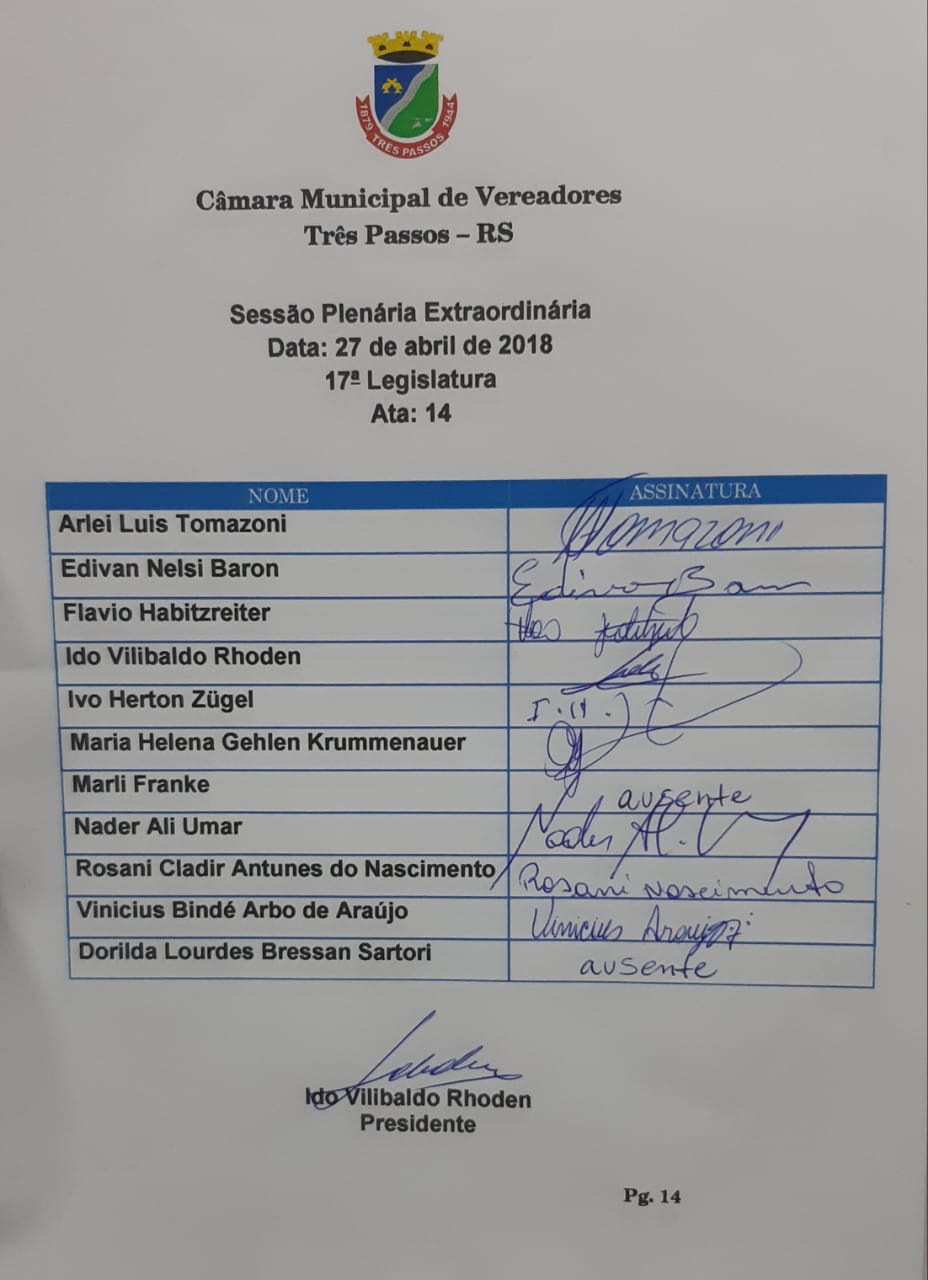 1879 TRES PASSOS 1944
Câmara Municipal de Vereadores
Três Passos – RS
Sessão Plenária Extraordinária
Data: 27 de abril de 2018
17ª Legislatura
Ata: 14
NOME ASSINATURA
Arlei Luis Tomazoni Tomazoni
Edivan Nelsi Baron
Flavio Habitzreiter
Ido Vilibaldo Rhoden
Ivo Herton Zügel I.H.
Maria Helena Gehlen Krummenauer
Marli Franke ausente
Nader Ali Umar Nader Al.
Rosani Cladir Antunes do Nascimento Rosani Nascimento
Vinicius Bindé Arbo de Araújo Vinicius Araujo
Dorilda Lourdes Bressan Sartori ausente
Ido Vilibaldo Rhoden
Presidente
Pg. 14